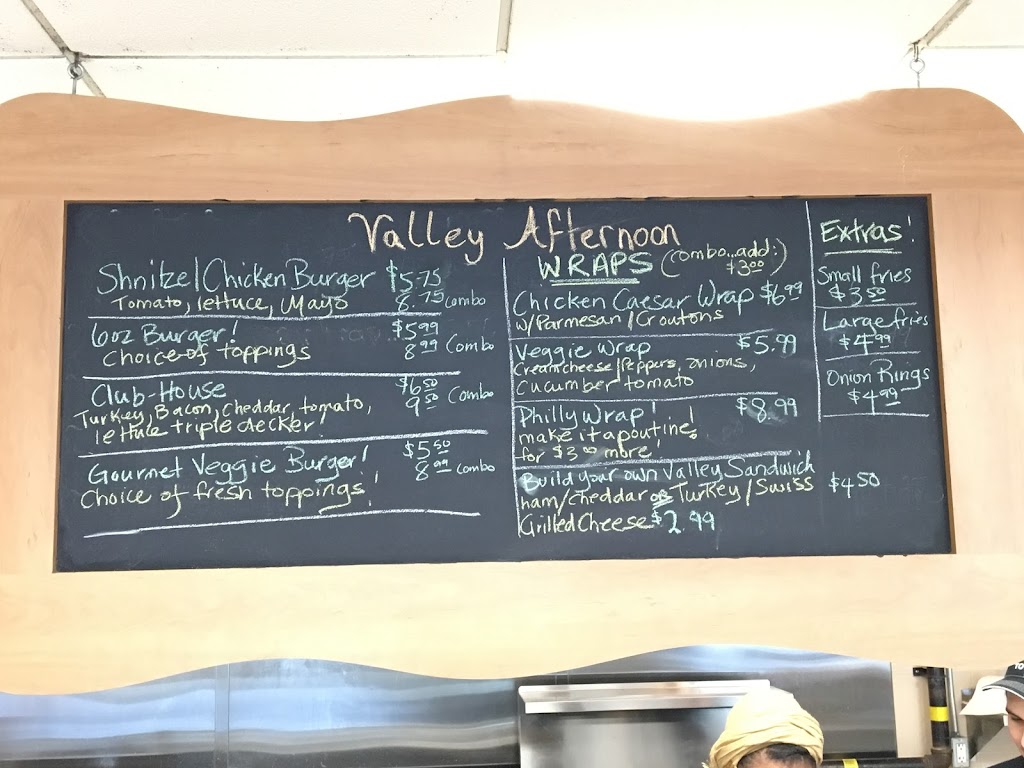 Valley Afternoon
Shnitzel Chicken Burger $5.75
Tomato, lettuce, Mayo 8.75 Combo
6oz Burger! $5.99
Choice of toppings 8.99 Combo
Club-House $6.50
Turkey, Bacon, cheddar, tomato, 9.50 Combo
lettuce triple decker!
Gourmet Veggie Burger! $5.50
Choice of fresh toppings! 8.99 Combo
WRAPS (Combo...add:) $3.00
Chicken Caesar Wrap $6.99
W/Parmesan/Croutons
Veggie Wrap $5.99
Creamcheese/Peppers, onions,
Cucumber tomato
Philly Wrap! $8.99
make it a poutine!
for $3.00 more!
Build your own Valley Sandwich
ham/cheddar or Turkey/Swiss $4.50
Grilled Cheese $2.99
Extras!
Small fries
$3.50
Large fries
$4.99
Onion Rings
$4.99